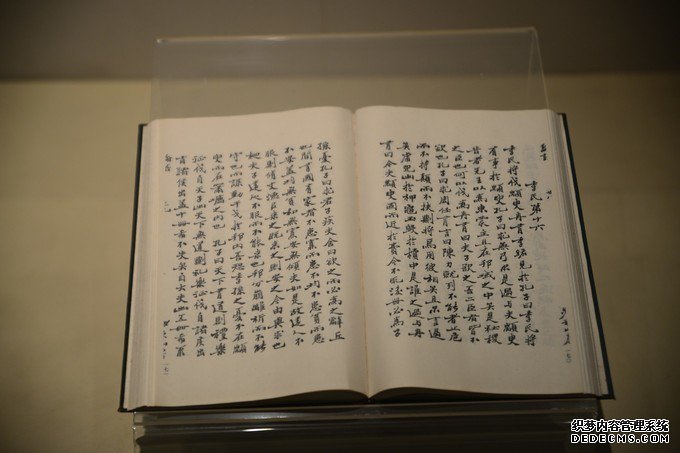 季氏第十六
季氏將伐顓臾冉有季路見於孔子曰季氏將
有事於顓臾孔子曰求無乃爾是過與夫顓臾
昔者先王以為東蒙主且在邦域之中矣是社稷
之臣也何以伐為冉有曰夫子欲之吾二臣者皆不
欲也孔子曰求周任有言曰陳力就列不能者止危
而不持顛而不扶則將焉用彼相矣且爾言過
矣虎兕出於柙龜玉毀於櫝中是誰之過與冉
有曰今夫顓臾固而近於費今不取後世必為子
孫憂孔子曰求君子疾夫舍曰欲之而必為之辭丘
也聞有國有家者不患寡而患不均不患貧而患
不安蓋均無貧和無寡安無傾夫如是故遠人不
服則修文德以來之既來之則安之今由與求也
相夫子遠人不服而不能來也邦分崩離析而不能
守也而謀動干戈於邦內吾恐季孫之憂不在顓
臾而在蕭墻之內也 孔子曰天下有道則禮樂
征伐自天子出天下無道則禮樂征伐自諸侯出
自諸侯出蓋十世希不失矣自大夫出五世希不
织梦内容管理系统
DEDECMS.COM